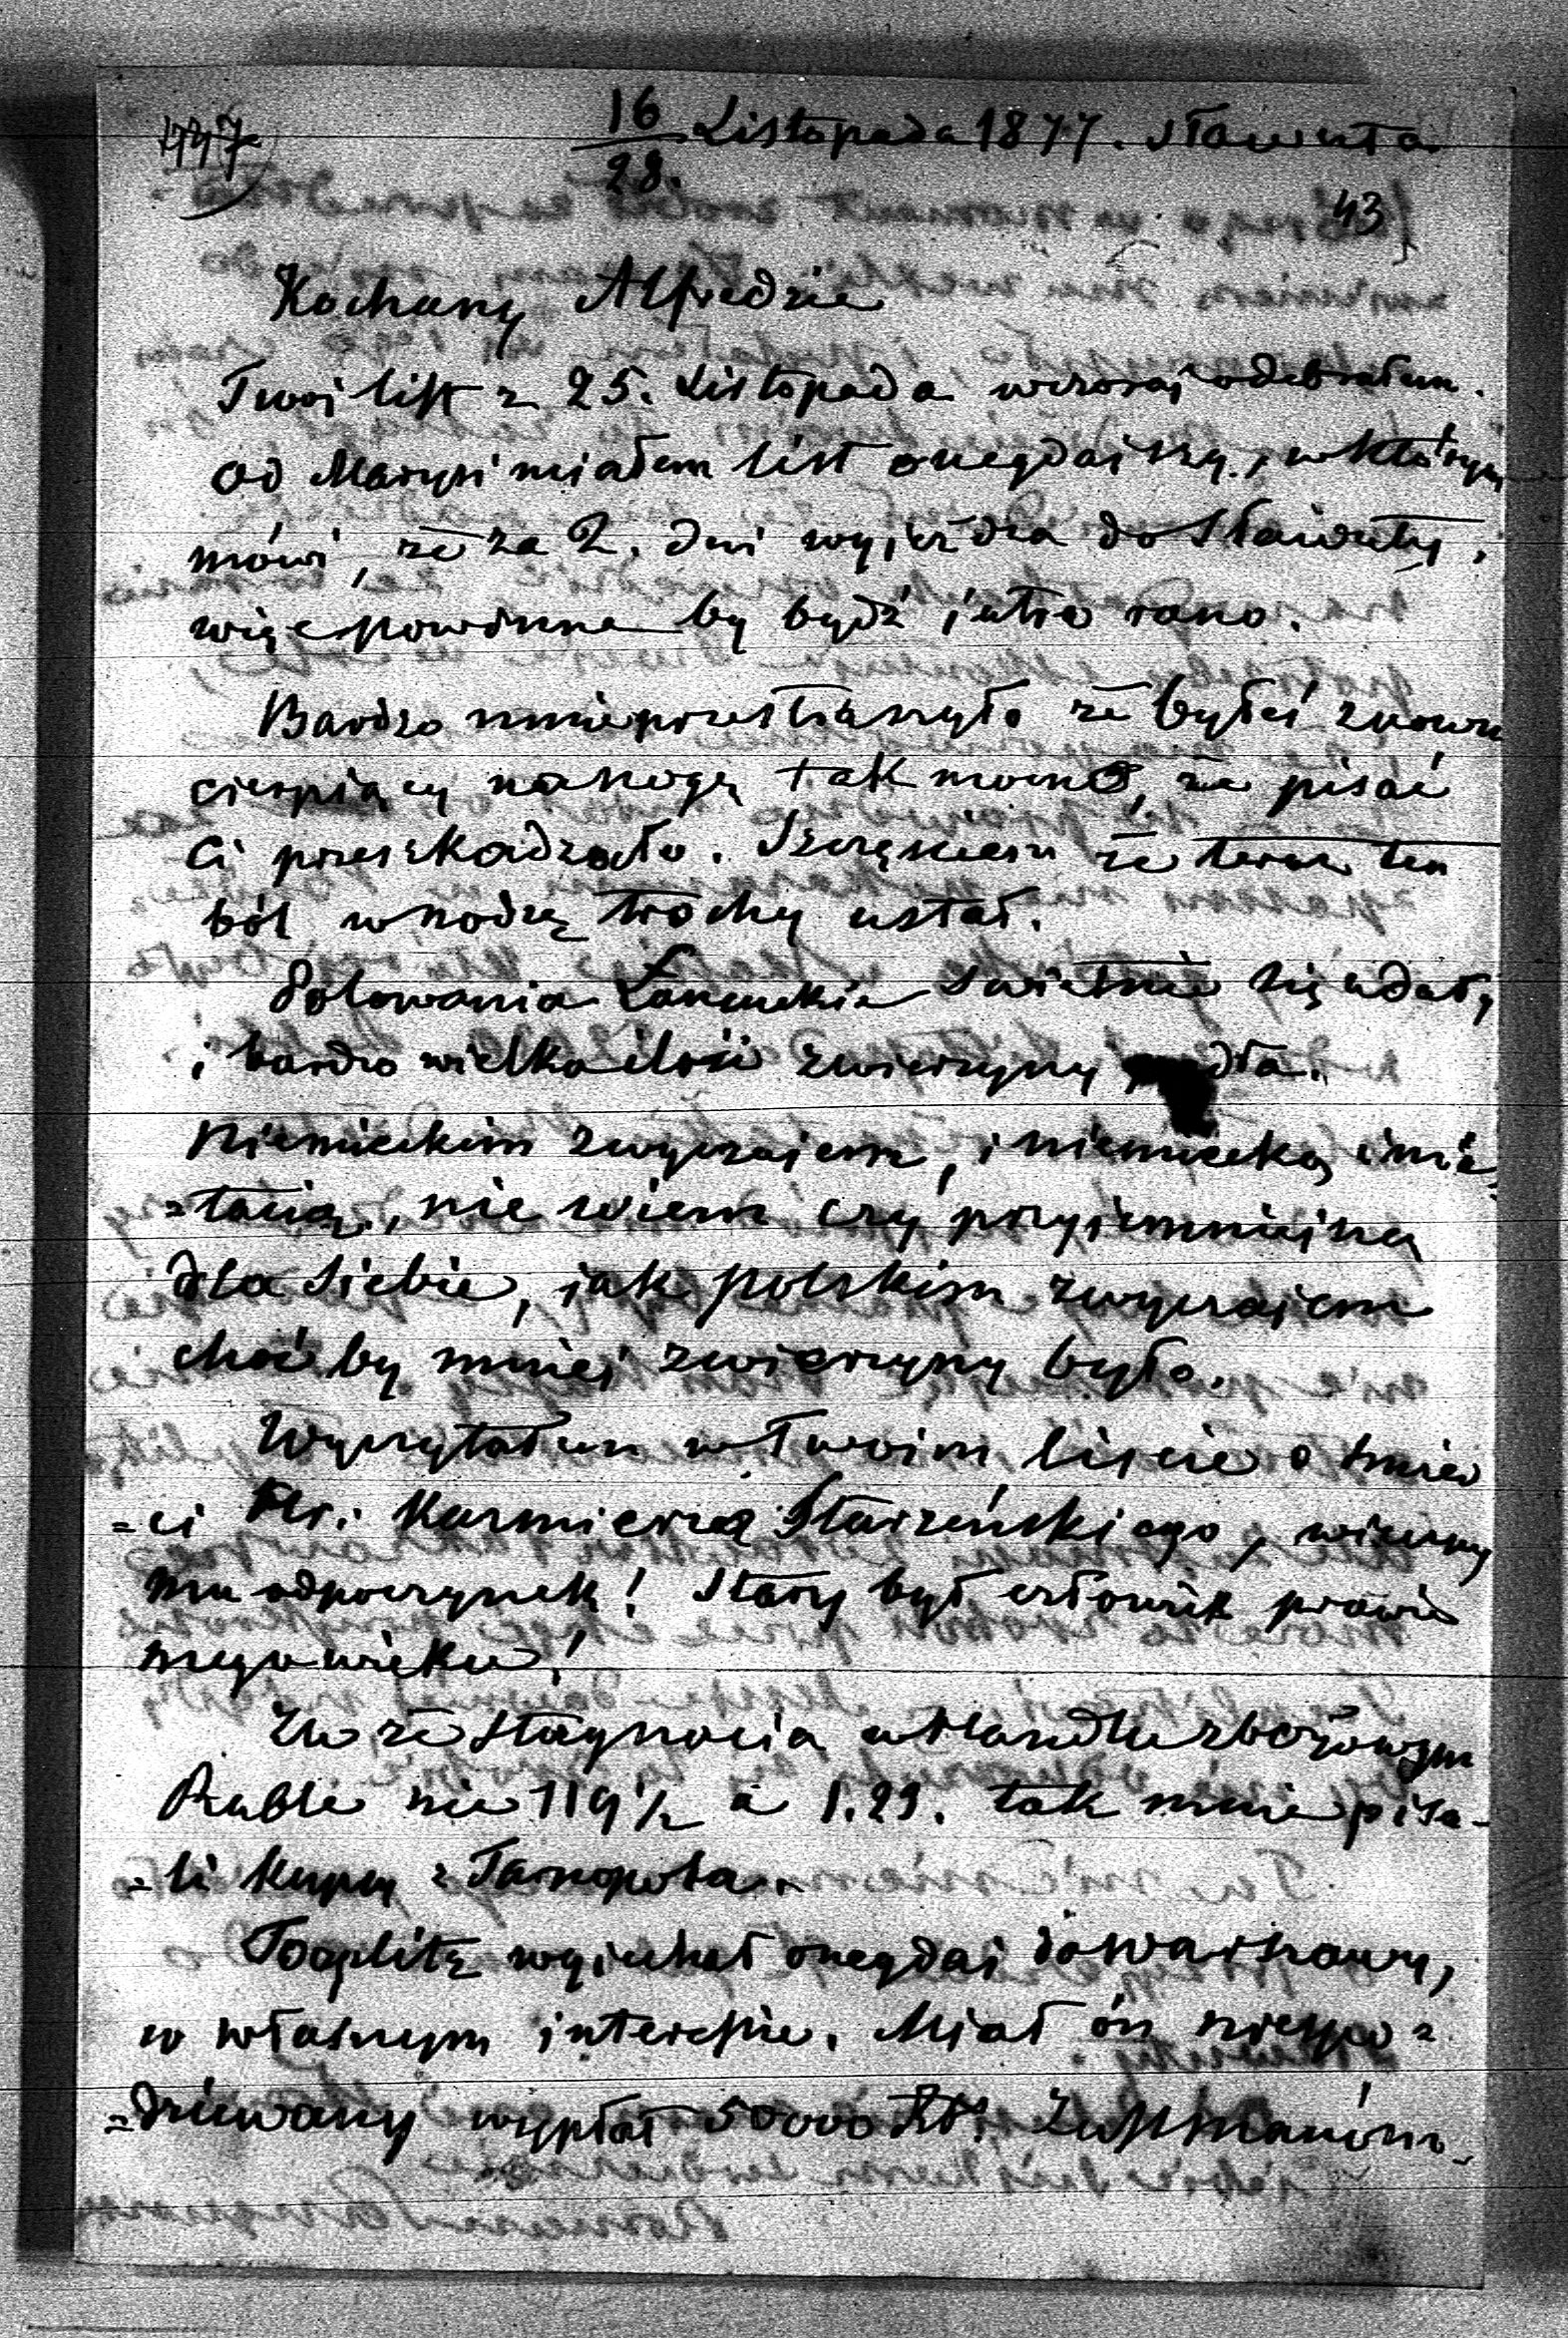 16/28. Listopada 1877. Sławuta
43
Kochany Alfredzie
Twoj list z 25. Listopada wczoraj odebrałem.
od Marysi miałem list onegdajszy, w którym
mówi, że za 2. dni wyjeżdża do Sławuty,
więc powinna by bydź jutro rano.
Bardzo mnie przestraszyło że byłeś znowu
cierpiący na nogę tak mocno, że pisać
Ci przeszkadzało. Szczęściem że teraz ten
ból w nodzę trochę ustał.
Polowania Łancuckie swietnie się udały,
i bardzo wielka ilość zwierzyny padła.
Niemieckim zwyczajem, i niemiecką imi=
=tacią, nie wiem czy przyjemniejszą
dla siebie, jak polskim zwyczajem
choć by mniej zwierzyny było.
Wyczytałem w Twoim liście o śmier=
=ci Hr. Kazmierza Starzeńskiego, wieczny
mu odpoczynek! Stary był człowiek prawie
mego wieku!
Zła że stagnacia w Handlu zbożowym
Ruble nie 119 1/2 a 1.29. tak mnie pisa-
=li kupcy z Tarnopola.
Toeplitz wyjechał onegdaj do Warszawy,
w własnym interesie. Miał ón niespo=
=dziewany wypłat 50000 Rbs.